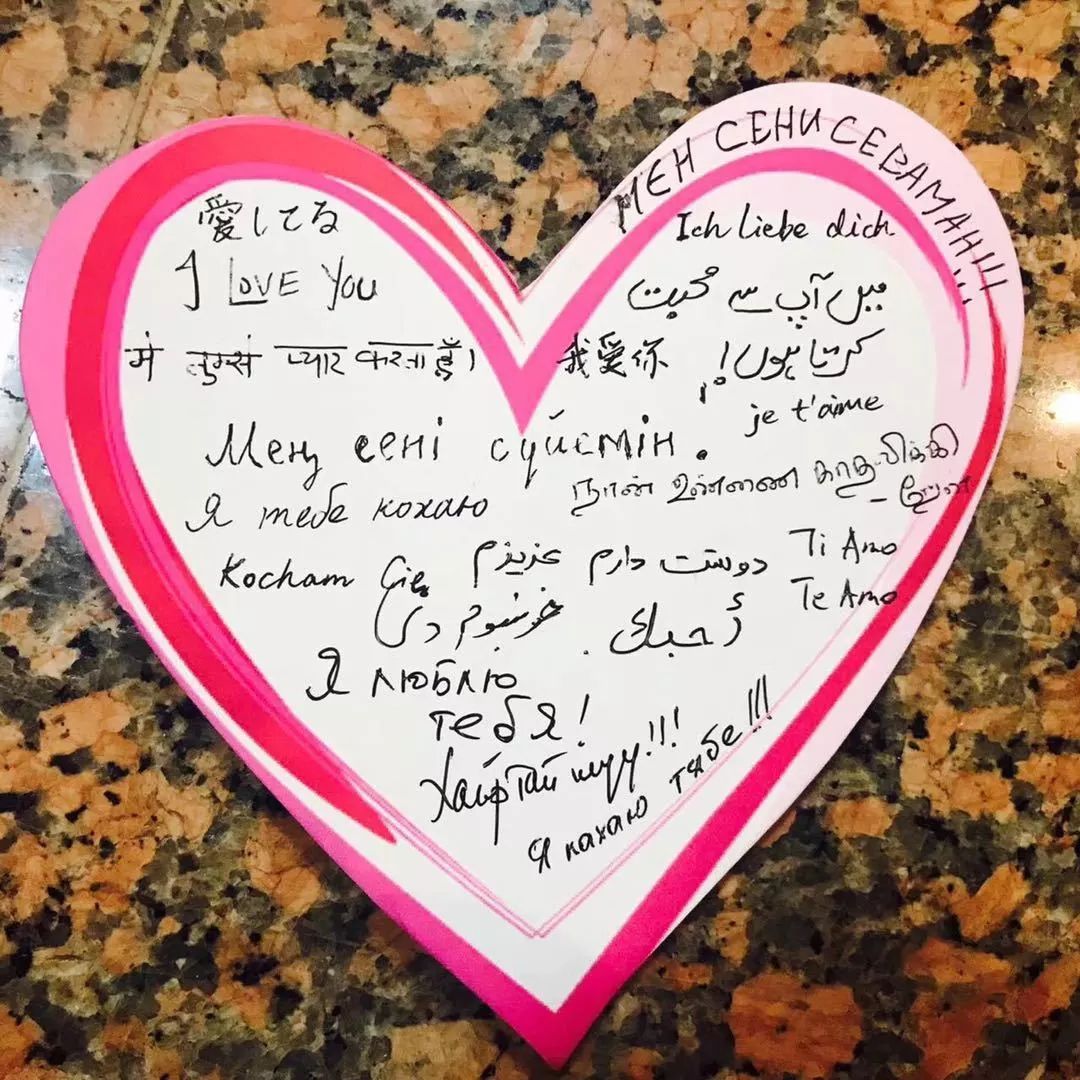 МЕН СЕНИ СЕВАМАН!!!!!
愛してる
Ich liebe dich
I LOVE YOU
میں آپ سے محبت
کرتا ہوں!
में तुमसं प्यार करता हूँ।
我爱你
je t'aime
Мен сені сүйемін.
நான் உன்னை காதலிக்கி
றேன்
Я тебе кохаю
Kocham Cię
دوست دارم عزیزم
Ti Amo
Te Amo
أحبك
Я люблю
тебя!
Хайртай шүү!!!
Я кахаю табе!!!